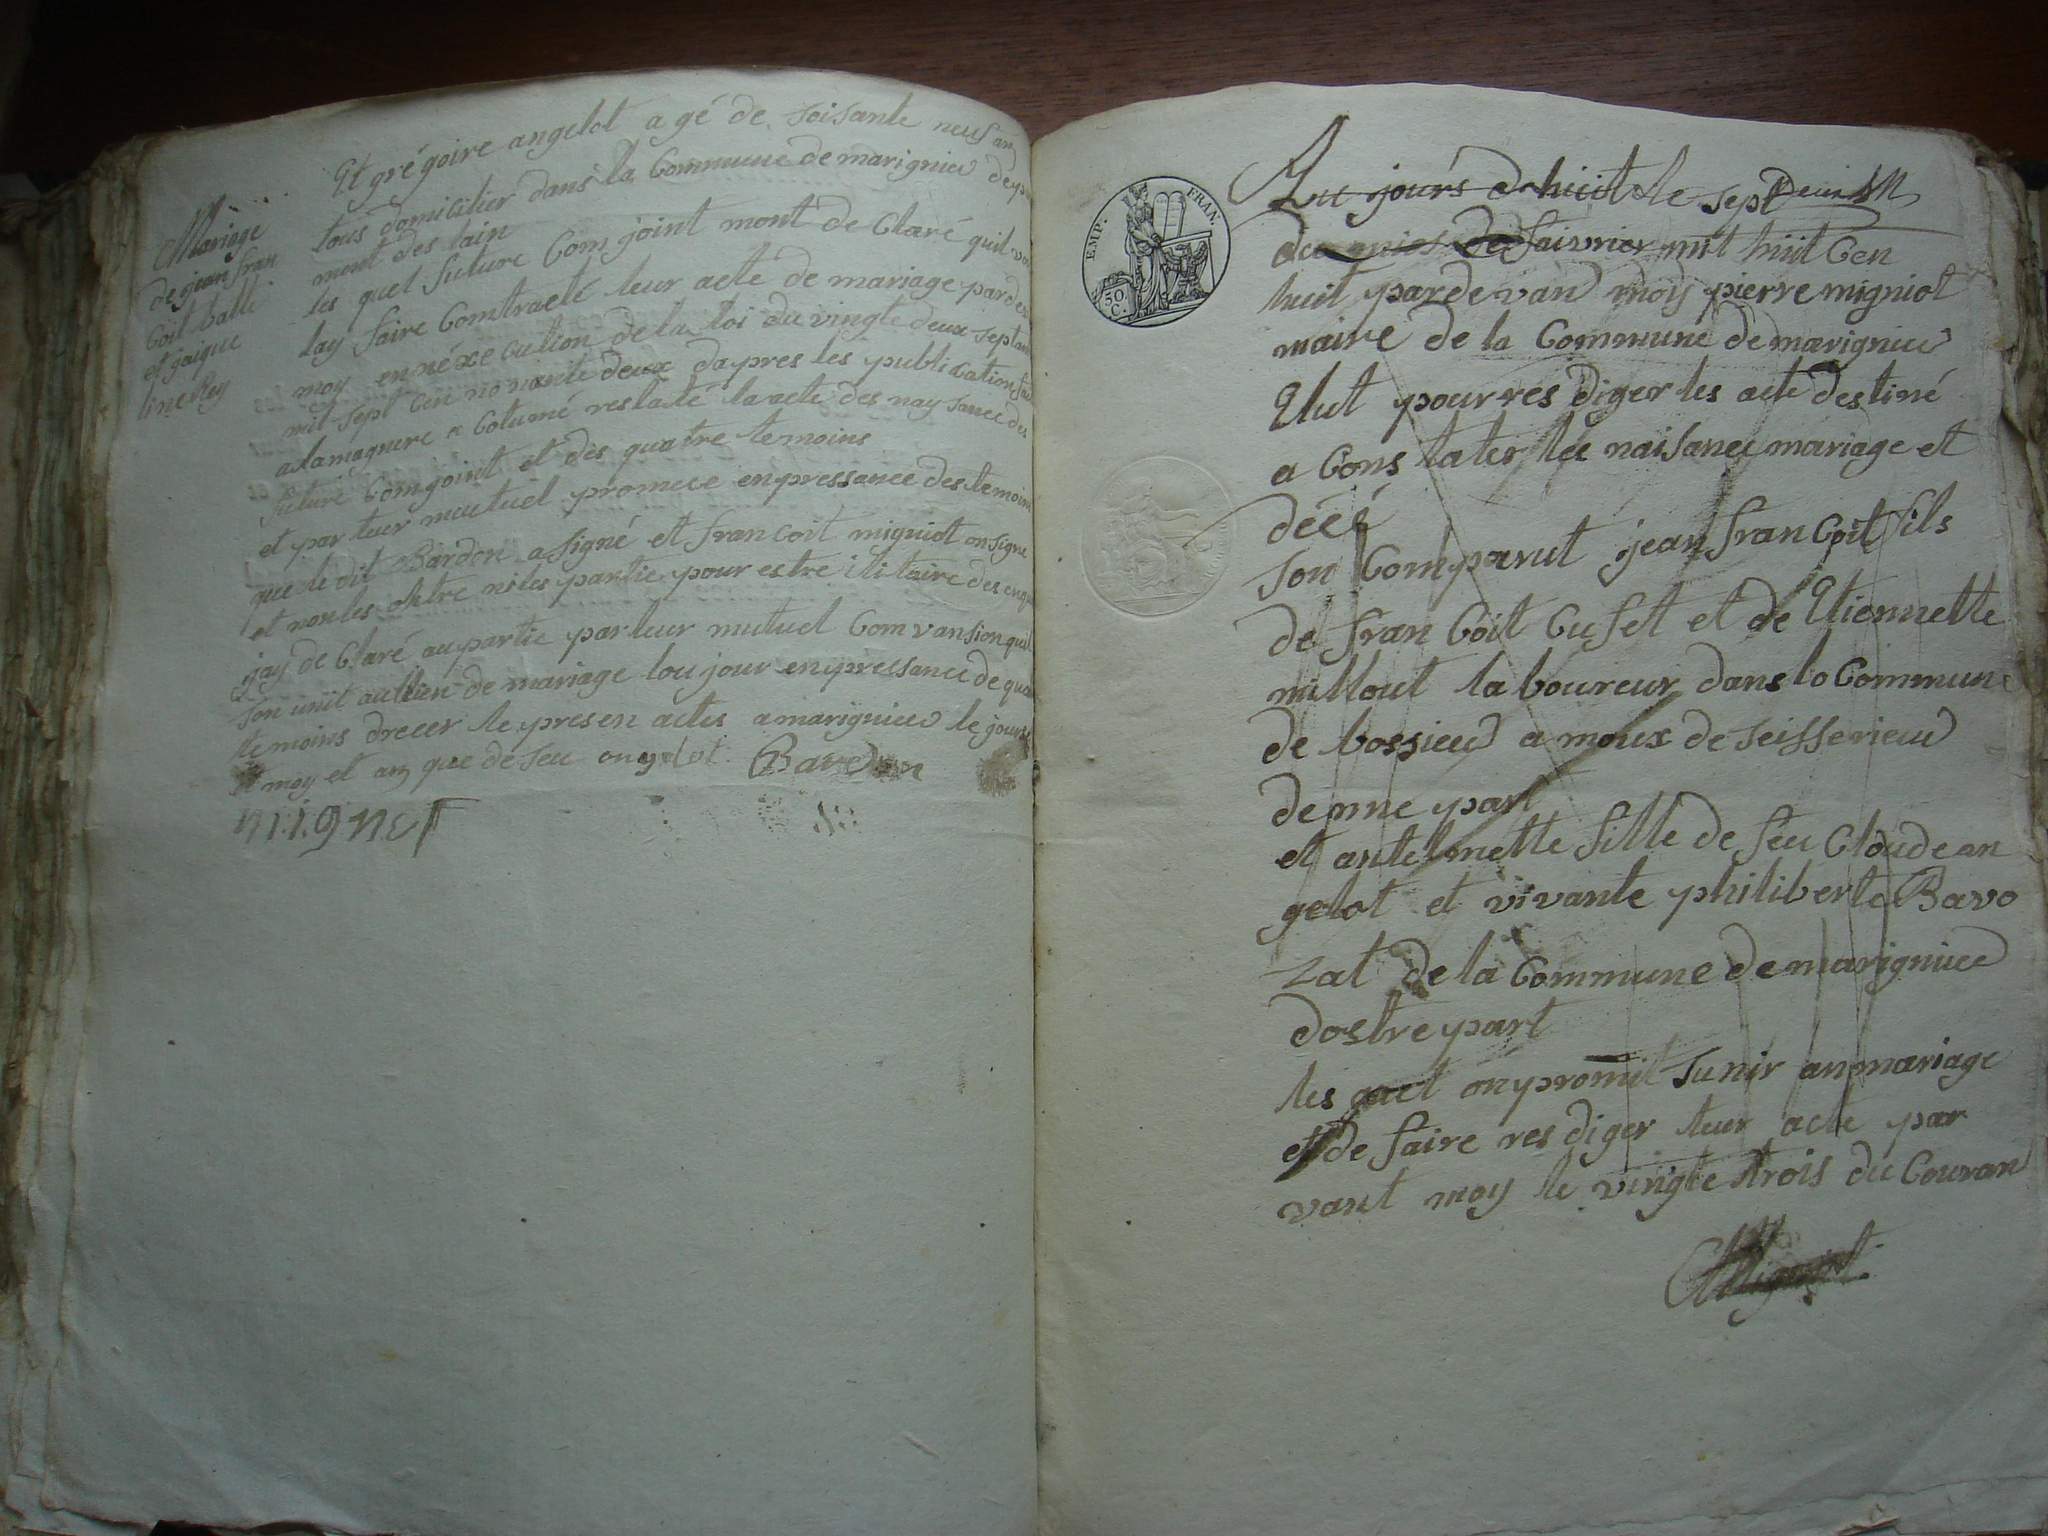 Mariage
de jean fran
Coit balli
et jaique
line Rey
Et grégoire angelot a gé de soisante neuf an
tous domicilier dans la Commune de marignieu dep
mont des lain
les quel future Com joint mont de Claré quil von
lay faire Comtracté leur acte de mariage par de
moy en néxe cution de la loi du vingte deux septan
mil sept Cen no vante deux dapres les publication
a la magnere a Cotumé restaté la acte des nay sance des
future Comjoint et dès quatre temoins
et par leur mutuel promece enpressance des temoins
que le dit Bardon a signé et fran coit migniot on signe
et non les ostre ni les partie pour estre ilitaire des enqui
jay de Claré au partie par leur mutuel Com vansion quil
son unit au lien de mariage tou jour enpressance de quatre
temoins drecer le presen actes a marignieu le jours
et moy et an que de seu angelot Bardon
migniet
EMP. FRAN.
30 C.
Au jours d huit le sept
du mies de faivrier mil huit Cen
huit par de vand moy pierre migniot
maire de la Commune de marignieu
Elut pour res diger les acte destiné
a Cons tater les naisance mariage et
décé
son Comparut jean fran Coit fils
de fran Coit Cuset et de Etiennette
millout la boureur dans la Commune
de bossieu a moux de seisserieu
denne part
et antelmette fille de feu Cloude an
gelot et vivante philiberte Bavo
zat de la Commune de marignieu
dostre part
les quel on promit sunir an mariage
et de faire res diger leur acte par
vant moy le vingte trois du Couran
Migniot